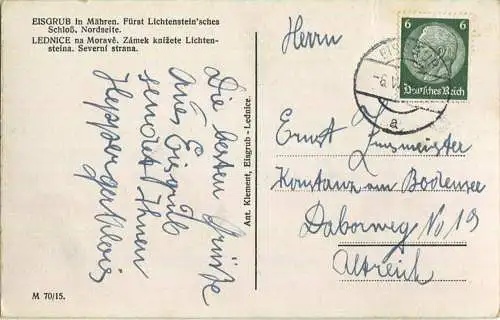 EISGRUB in Mähren. Fürst Lichtenstein'sches
Schloß. Nordseite.
LEDNICE na Moravě. Zámek knížete Lichten-
steina. Severní strana.
Die besten Grüße
aus Eisgrub
sendet Ihnen
M 70/15.
Ant. Klement, Eisgrub - Lednice.
Herrn
6 6
Deutsches Reich
a
Ernst
Konstanz am Bodensee
Daborweg No 19
Altreich